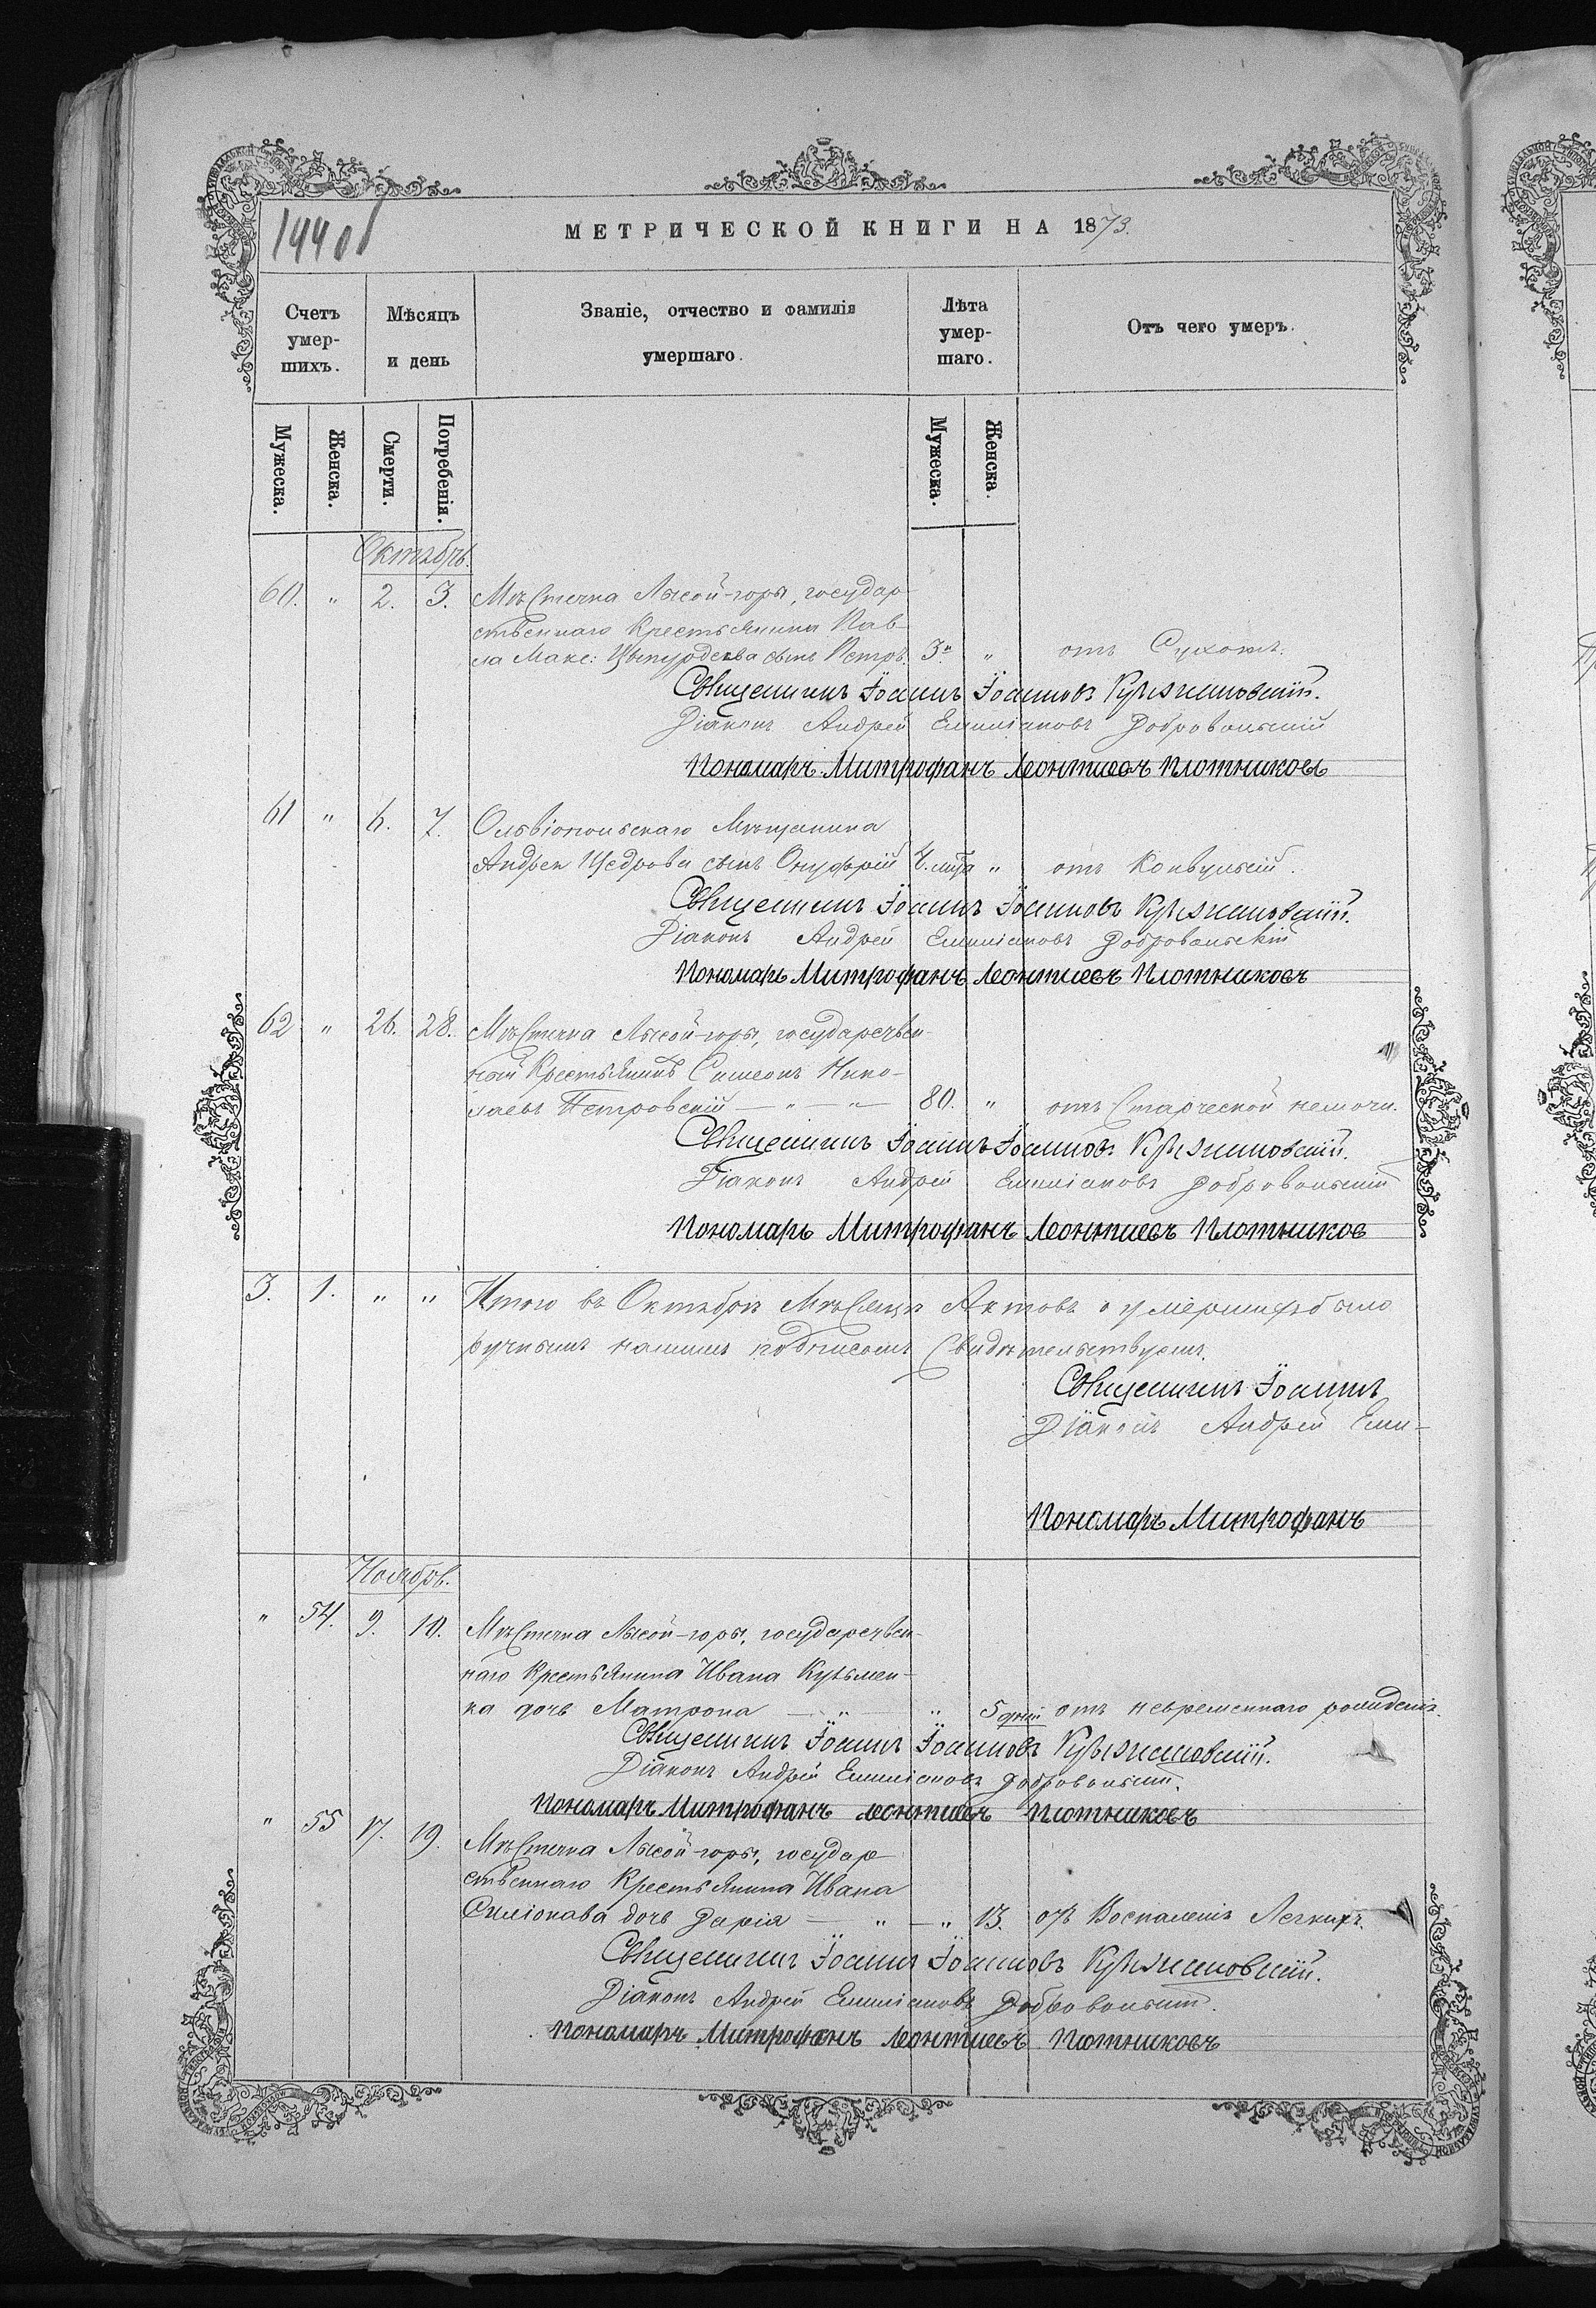 144об
МЕТРИЧЕСКОЙ КНИГИ НА 1873.
Счетъ умер-шихъ.
Мѣсяцъ и день
Званіе, отчество и фамилія умершаго.
Лѣта умер-шаго.
Отъ чего умеръ.
Мужеска.
Женска.
Смерти.
Погребенія.
Мужеска.
Женска.
Октябрь.
60. " 2. 3. Мѣстечка Лысой-горы, государ-
ственнаго Крестьянина Пав-
ла Макс: сынъ Петръ. 3" " отъ Сухотъ.
Священникъ Іоаннъ Іоанновъ Крыжановскій.
Діаконъ Андрей Емиліановъ Добровольскій
Пономарь Митрофанъ Леонтиевъ Плотниковъ
61 " 6. 7. Ольвіопольскаго Мѣщанина
Андрея Щедрова сынъ Онуфрій 4. мца " отъ Конвульсій.
Священникъ Іоаннъ Іоанновъ Крыжановскій.
Діаконъ Андрей Емиліановъ Добровольскій
Пономарь Митрофанъ Леонтиевъ Плотниковъ
62 " 26. 28. Мѣстечка Лысой-горы, государствен-
ный Крестьянинъ Симеонъ Нико-
лаевъ Петровскій — " — " — 80. " отъ Старческой немочи.
Священникъ Іоаннъ Іоанновъ Крыжановскій.
Діаконъ Андрей Емиліановъ Добровольскій
Пономарь Митрофанъ Леонтиевъ Плотников
3. 1. " " Итого въ Октябрѣ Мѣсяцѣ Актовъ о умершихъ было
ручнымъ нашимъ подписомъ Свидѣтельствуемъ.
Священникъ Іоаннъ
Діаконъ Андрей Еми-
Пономарь Митрофанъ
Ноябрь.
" 54. 9. 10. Мѣстечка Лысой-горы, государствен-
наго Крестьянина Ивана Кузьмен-
ка дочь Матрона — " — " 5 дней отъ невременнаго рожденія.
Священникъ Іоаннъ Іоанновъ Крыжановскій.
Діаконъ Андрей Емиліановъ Добровольскій.
Пономарь Митрофанъ Леонтиевъ Плотниковъ
" 55 17. 19. Мѣстечка Лысой-горы, государ-
ственнаго Крестьянина Ивана
дочь Дарія — " — " 13. отъ Воспаленія Легкихъ.
Священникъ Іоаннъ Іоанновъ Крыжановскій.
Діаконъ Андрей Емиліановъ Добровольскій.
Пономарь Митрофанъ Леонтиевъ Плотниковъ